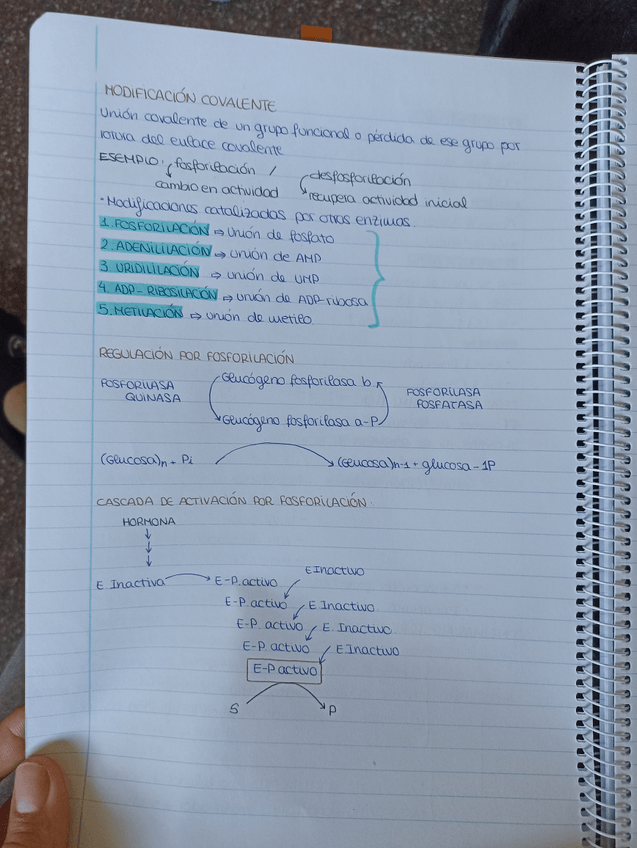 MODIFICACIÓN COVALENTE
Unión covalente de un grupo funcional o pérdida de ese grupo por
rotura del enlace covalente
ESEMPIO: fosforilación / desfosforilación
cambio en actividad recupera actividad inicial
· Modificaciones catalizadas por otros enzimas.
1. FOSFORILACIÓN ⇨ Unión de fosfato
2. ADENILILACIÓN ⇨ unión de AMP
3. URIDILILACIÓN ⇨ unión de UMP
4. ADP-RIBOSILACIÓN ⇨ unión de ADP-ribosa
5. METILACIÓN ⇨ unión de metilo.
REGULACIÓN POR FOSFORILACIÓN
FOSFORILASA QUINASA
Glucógeno fosforilasa b
Glucógeno fosforilasa a-P
FOSFORILASA FOSFATASA
(Glucosa)n + Pi → (Glucosa)n-1 + glucosa-1P
CASCADA DE ACTIVACIÓN POR FOSFORILACIÓN
HORMONA
E. Inactiva → E-P. activo E Inactivo
E-P. activo E Inactivo
E-P. activo E. Inactivo
E-P. activo E Inactivo
E-P activo
S P